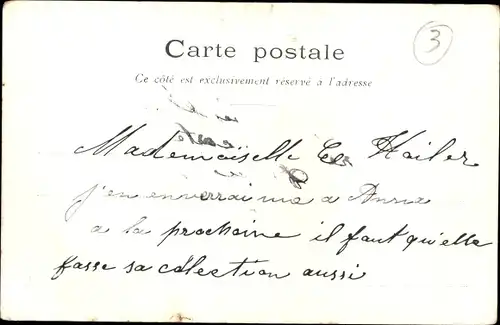 Carte postale
3
Ce côté est exclusivement réservé à l'adresse
Mademoiselle Hailer
j'en enverai une a Anna
a la prochaine il faut qu'elle
fasse sa colection aussi